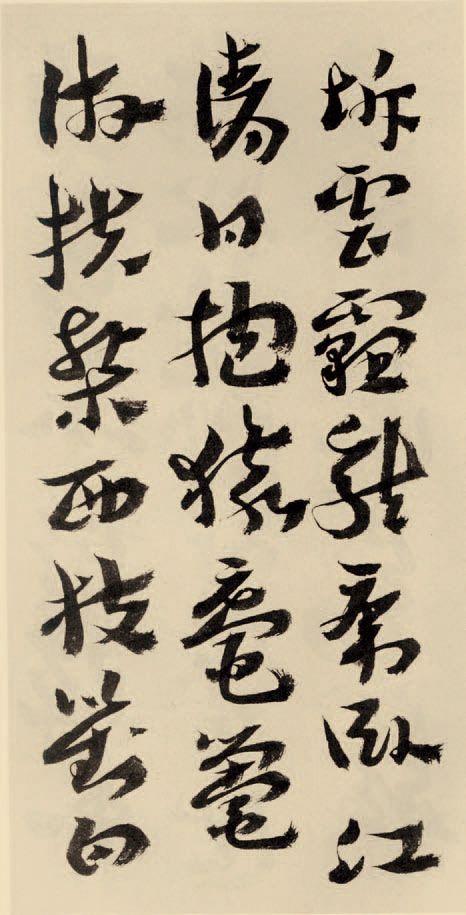 坼雲霾龍虎臥江
清日抱猿黿鼉
游扶桑西枝對白